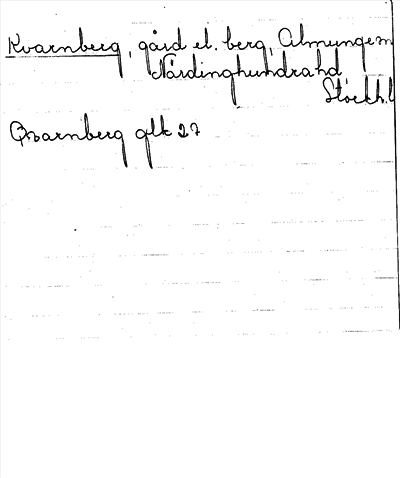 Kvarnberg, gård el. berg, Almunge sn
Närdinghundra hd
Stockh. l
Qvarnberg glk 27